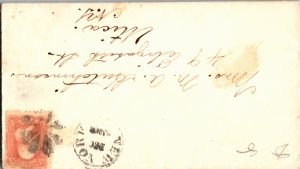 Mrs. M. A. Hutchinson
49 Elizabeth St.
Utica
N.Y.
NEW YORK
DEC
$5